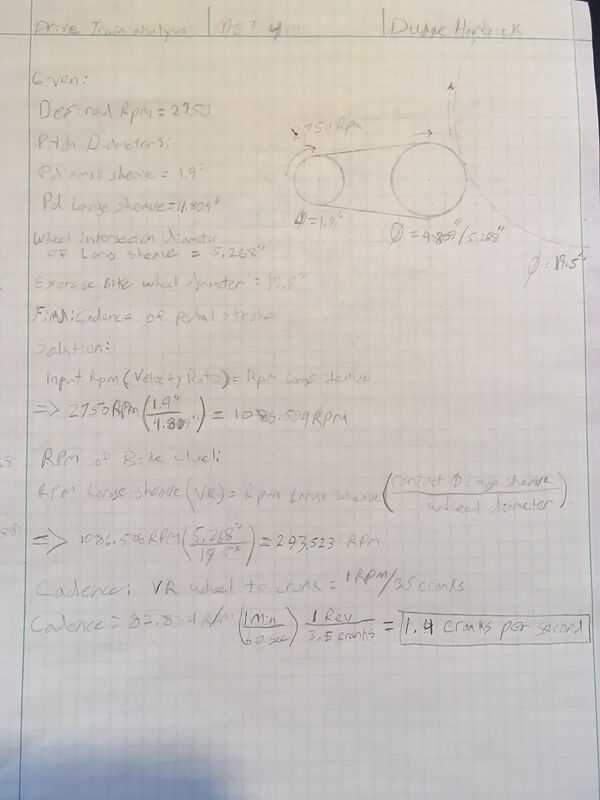 Drive Train analysis MET 419 Duane Harbick
Given:
Desired Rpm = 2750
Pitch Diameters:
Pd small sheave = 1.9"
Pd Large Sheave = 4.809"
Wheel intersection diameter
of Large sheave = 5.268"
Exercise Bike wheel diameter = 19.5"
Find: Cadence of pedal stroke
Solution:
2750 Rpm
Φ = 1.9"
Φ = 4.809"/5.268"
Φ = 19.5"
Input Rpm (Velocity Ratio) = Rpm Large sheave
=> 2750 RPM (1.9"/4.809") = 1086.504 RPM
RPM of Bike wheel:
RPM Large sheave (VR) = Rpm Large sheave (contact Φ Large sheave / wheel diameter)
=> 1086.506 RPM (5.268"/19.5") = 293.523 RPM
Cadence: VR wheel to crank = 1 RPM/3.5 cranks
Cadence = 82.864 R/M (1 Min/60 sec) 1 Rev/3.5 cranks = 1.4 cranks per second